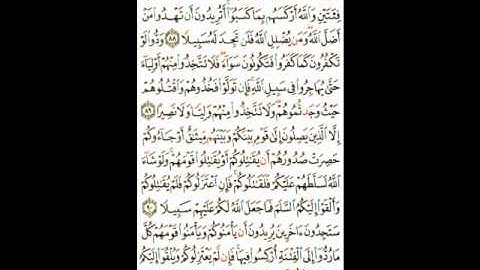 فِئَتَيْنِ وَاللَّهُ أَرْكَسَهُم بِمَا كَسَبُوا أَتُرِيدُونَ أَن تَهْدُوا مَنْ
أَضَلَّ اللَّهُ وَمَن يُضْلِلِ اللَّهُ فَلَن تَجِدَ لَهُ سَبِيلًا ٨٨ وَدُّوا لَوْ
تَكْفُرُونَ كَمَا كَفَرُوا فَتَكُونُونَ سَوَاءً فَلَا تَتَّخِذُوا مِنْهُمْ أَوْلِيَاءَ
حَتَّىٰ يُهَاجِرُوا فِي سَبِيلِ اللَّهِ فَإِن تَوَلَّوْا فَخُذُوهُمْ وَاقْتُلُوهُمْ
حَيْثُ وَجَدتُّمُوهُمْ وَلَا تَتَّخِذُوا مِنْهُمْ وَلِيًّا وَلَا نَصِيرًا ٨٩
إِلَّا الَّذِينَ يَصِلُونَ إِلَىٰ قَوْمٍ بَيْنَكُمْ وَبَيْنَهُم مِّيثَٰقٌ أَوْ جَاءُوكُمْ
حَصِرَتْ صُدُورُهُمْ أَن يُقَٰتِلُوكُمْ أَوْ يُقَٰتِلُوا قَوْمَهُمْ وَلَوْ شَاءَ
اللَّهُ لَسَلَّطَهُمْ عَلَيْكُمْ فَلَقَٰتَلُوكُمْ فَإِنِ اعْتَزَلُوكُمْ فَلَمْ يُقَٰتِلُوكُمْ
وَأَلْقَوْا إِلَيْكُمُ السَّلَمَ فَمَا جَعَلَ اللَّهُ لَكُمْ عَلَيْهِمْ سَبِيلًا ٩٠
سَتَجِدُونَ ءَاخَرِينَ يُرِيدُونَ أَن يَأْمَنُوكُمْ وَيَأْمَنُوا قَوْمَهُمْ كُلَّ
مَا رُدُّوا إِلَى الْفِتْنَةِ أُرْكِسُوا فِيهَا فَإِن لَّمْ يَعْتَزِلُوكُمْ وَيُلْقُوا إِلَيْكُمُ